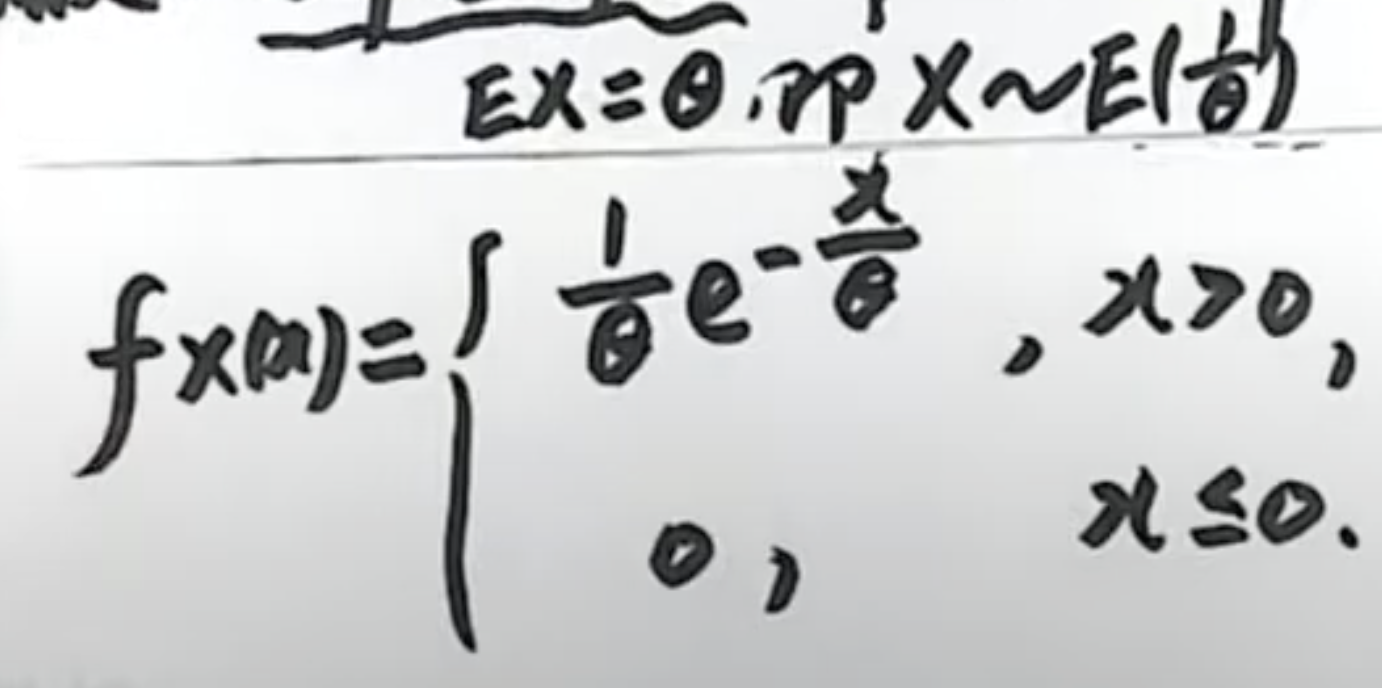 EX=θ,即X~E(1/θ)
fX(x)={ 1/θ e^(-x/θ), x>0,
0, x≤0.